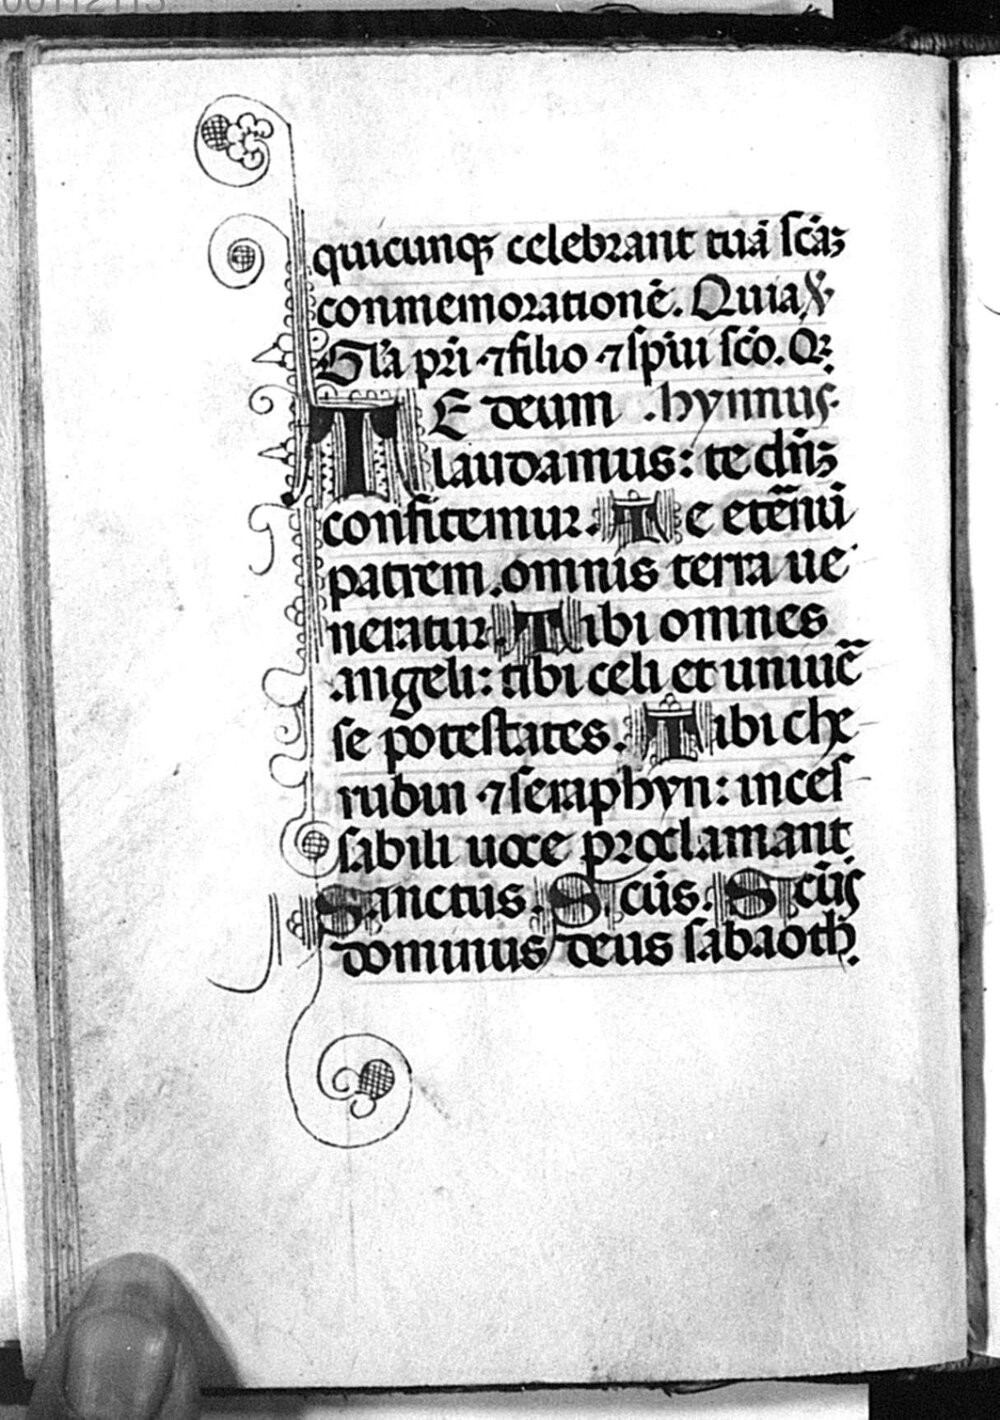 quicunqꝫ celebrant tuā sc̄aꝫ
conmemorationē. Quia ℣
Gl̄a pr̄i ⁊ filio ⁊ sp̄iui sc̄o. Qꝛ.
TE deum . hymnus.
laudamus: te dn̄ꝫ
confitemur. Te etēnū
patrem .omnis terra ue
neratur. Tibi omnes
angeli: tibi celi et uniuē
se potestates. Tibi che
rubin ⁊ seraphyn: inces
sabili uoce proclamant.
Sanctus. Sc̄us. Sc̄us
dominus deus sabaoth.